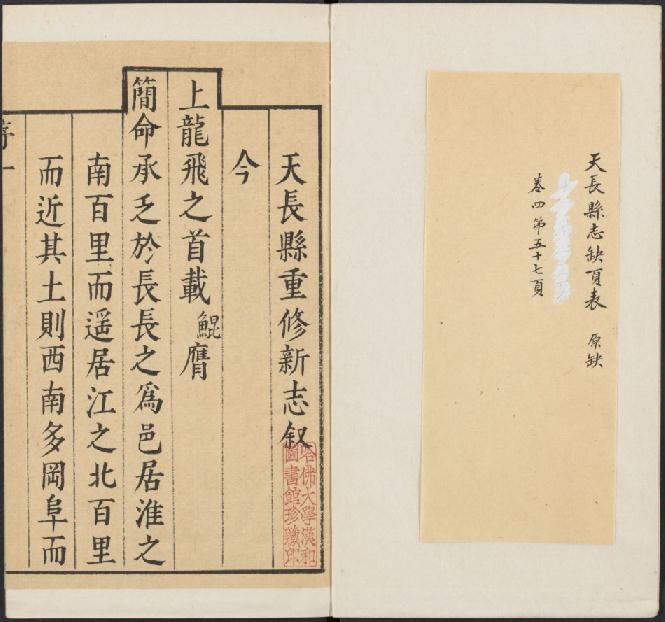 天長縣志缺頁表　原缺
卷四第五十七頁
天長縣重修新志叙
哈佛大學漢和
圖書館珍藏印
今
上龍飛之首載鯤膺
簡命承乏於長長之爲邑居淮之
南百里而遥居江之北百里
而近其土則西南多岡阜而
序一